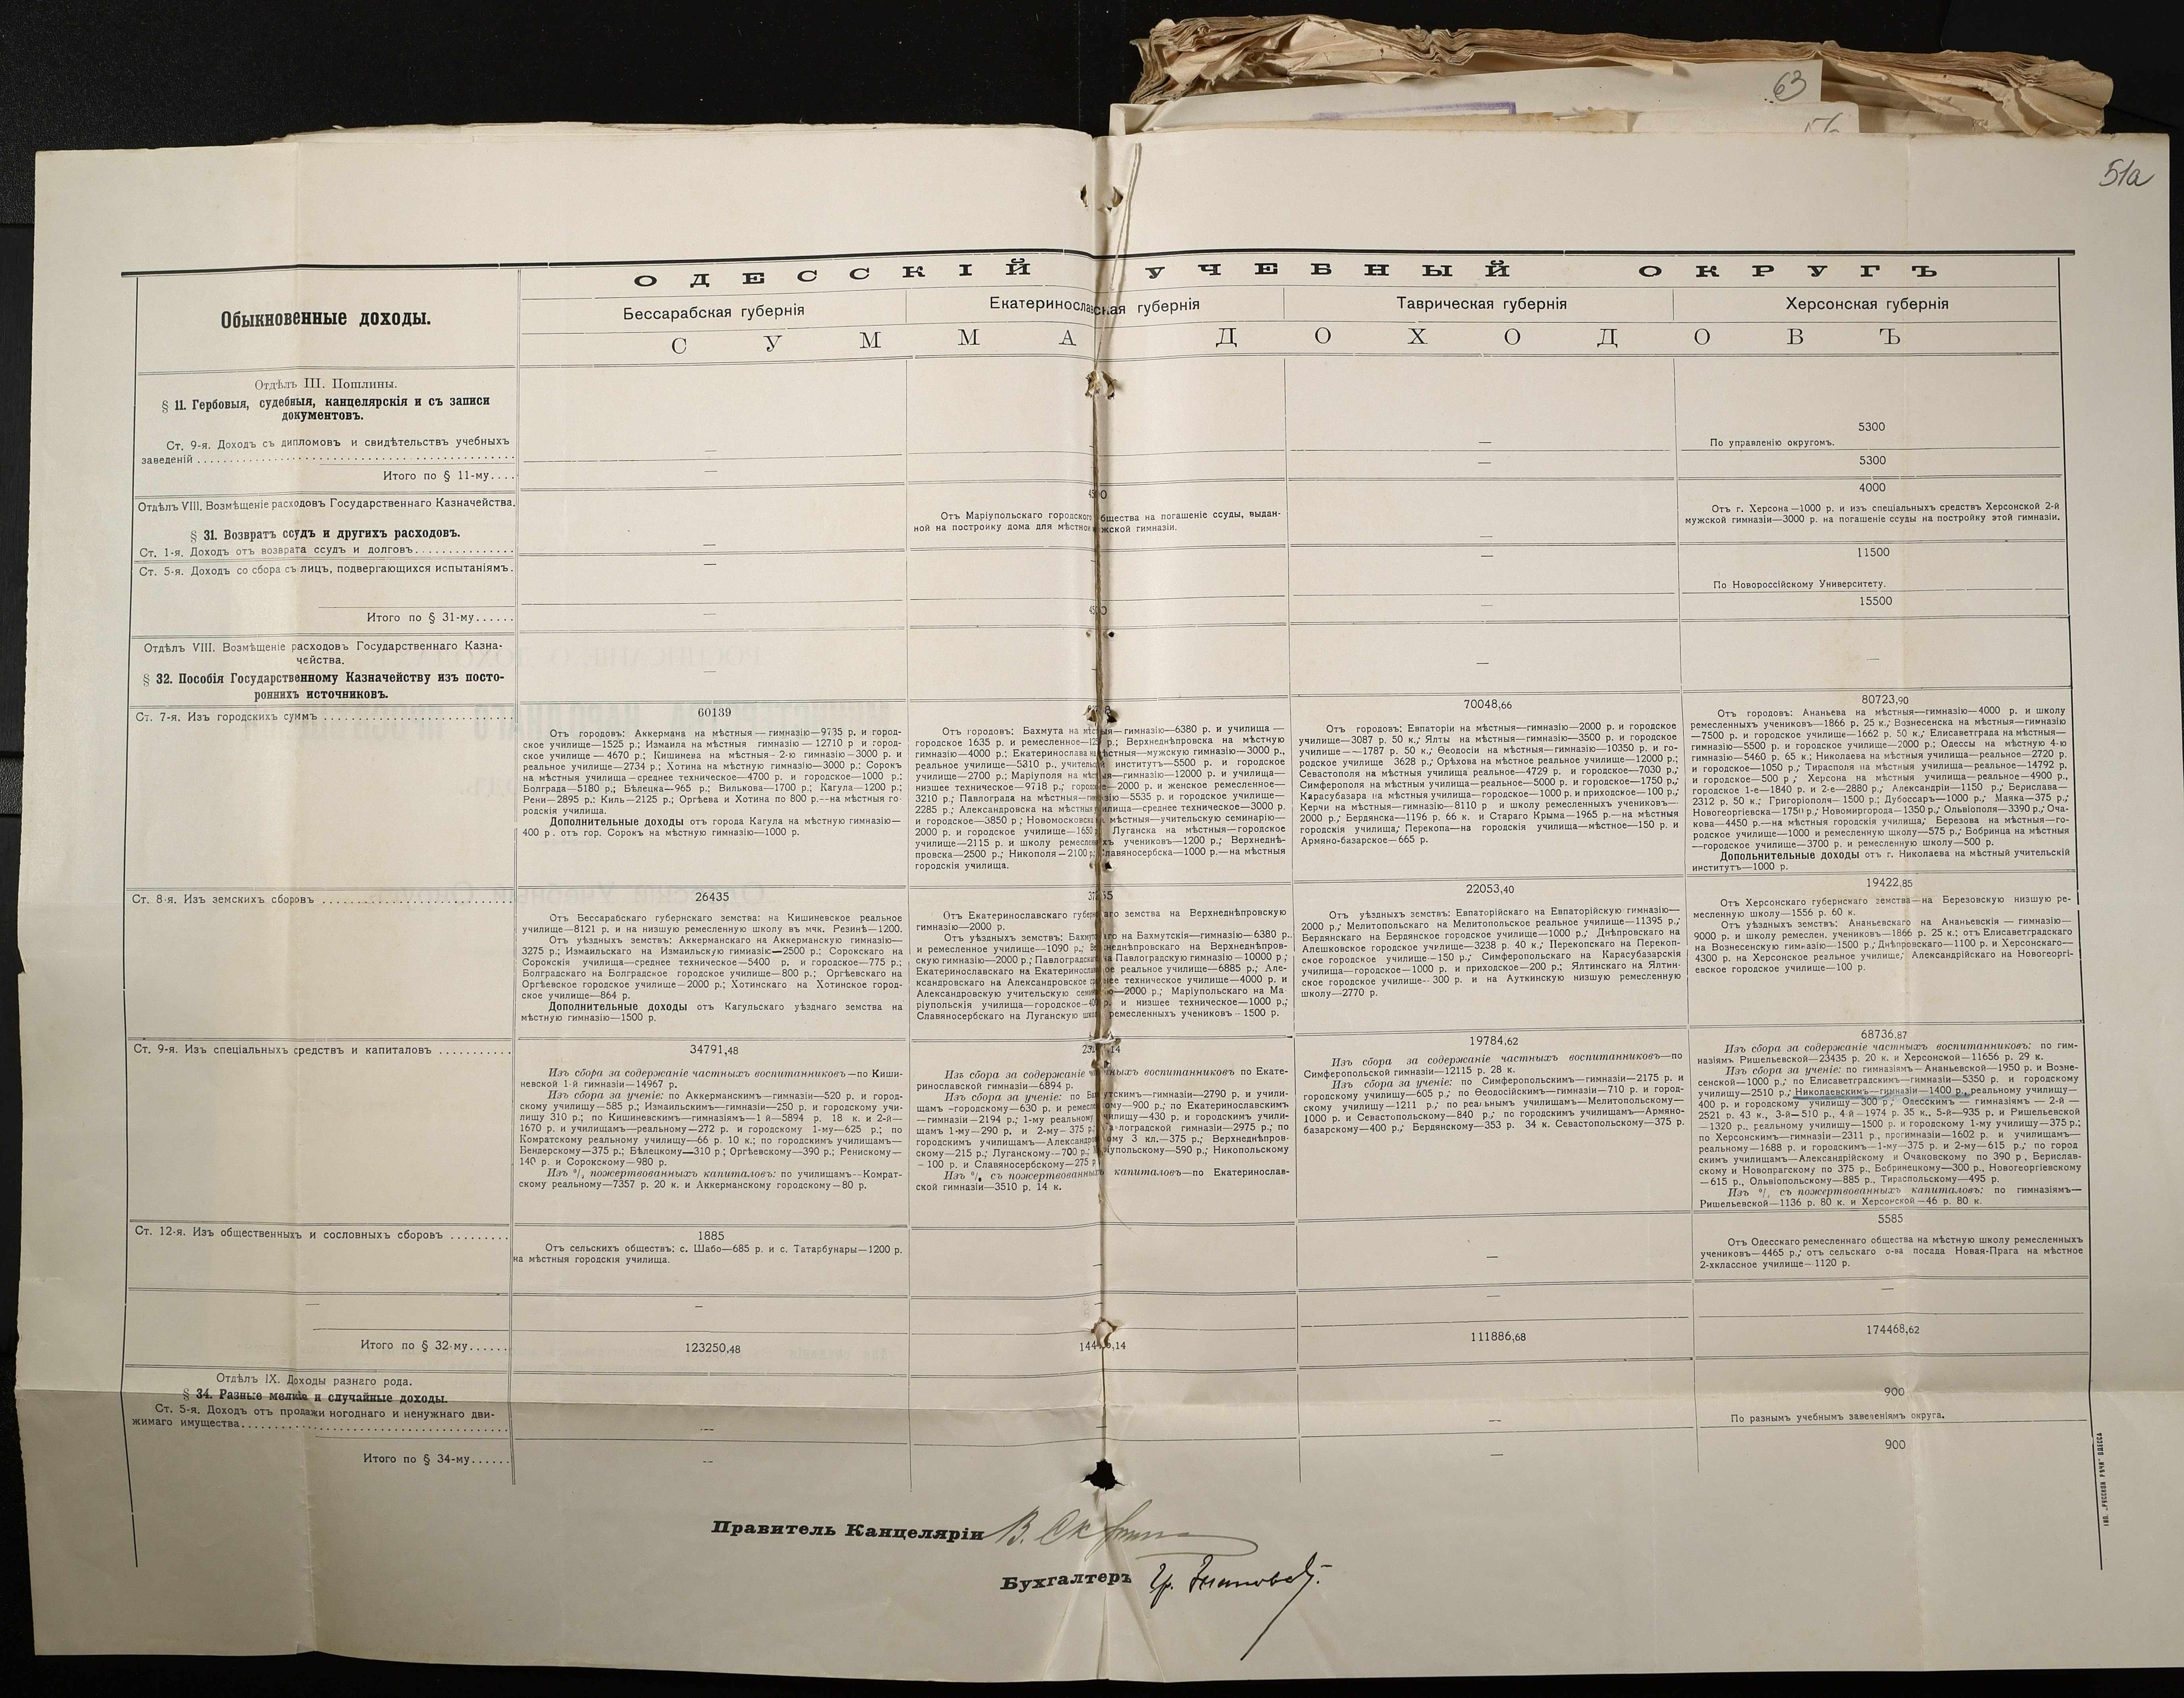 63
51а
ОДЕССКІЙ УЧЕБНЫЙ ОКРУГЪ
Обыкновенные доходы.
Бессарабская губернія
Екатеринославская губернія
Таврическая губернія
Херсонская губернія
СУММА ДОХОДОВЪ
Отдѣлъ III. Пошлины.
§ 11. Гербовыя, судебныя, канцелярскія и съ записи
документовъ.
Ст. 9-я. Доходъ съ дипломовъ и свидѣтельствъ учебныхъ
заведеній
—
—
5300
По управленію округомъ.
Итого по § 11-му....
—
—
5300
Отдѣлъ VIII. Возмѣщеніе расходовъ Государственнаго Казначейства.
§ 31. Возвратъ ссудъ и другихъ расходовъ.
Ст. 1-я. Доходъ отъ возврата ссудъ и долговъ
—
Отъ Маріупольскаго городского общества на погашеніе ссуды, выдан-
ной на постройку дома для мѣстной мужской гимназіи.
—
4000
Отъ г. Херсона—1000 р. и изъ спеціальныхъ средствъ Херсонской 2-й
мужской гимназіи—3000 р. на погашеніе ссуды на постройку этой гимназіи.
Ст. 5-я. Доходъ со сбора съ лицъ, подвергающихся испытаніямъ.
—
—
11500
По Новороссійскому Университету.
Итого по § 31-му......
—
—
15500
Отдѣлъ VIII. Возмѣщеніе расходовъ Государственнаго Казна-
чейства.
§ 32. Пособія Государственному Казначейству изъ посто-
роннихъ источниковъ.
—
—
—
Ст. 7-я. Изъ городскихъ суммъ
60139
Отъ городовъ: Аккермана на мѣстныя—гимназію—9735 р. и город-
ское училище—1525 р.; Измаила на мѣстныя гимназію—12710 р и город-
ское училище—4670 р.; Кишинева на мѣстныя-2-ю гимназію—3000 р. и
реальное училище—2734 р.; Хотина на мѣстную гимназію—3000 р.; Сорокъ
на мѣстныя училища-среднее техническое—4700 р. и городское—1000 р.;
Болграда—5180 р.; Бѣлецка—965 р.; Вилькова—1700 р.; Кагула—1200 р.;
Рени—2895 р.; Киль—2125 р.; Оргѣева и Хотина по 800 р.—на мѣстныя го-
родскія училища.
Дополнительные доходы отъ города Кагула на мѣстную гимназію—
400 р. отъ гор. Сорокъ на мѣстную гимназію—1000 р.
Отъ городовъ: Бахмута на мѣстныя—гимназію—6380 р. и училища—
городское 1635 р. и ремесленное— р.; Верхнеднѣпровска на мѣстную
гимназію—4000 р.; Екатеринослава на мѣстныя—мужскую гимназію—3000 р.,
реальное училище—5310 р., учительскій институтъ—5500 р. и городское
училище—2700 р.; Маріуполя на мѣстныя—гимназію—12000 р. и училища—
низшее техническое—9718 р., городское—2000 р. и женское ремесленное—
3210 р.; Павлограда на мѣстныя—гимназію—5535 р. и городское училище—
2285 р.; Александровска на мѣстныя училища—среднее техническое—3000 р.
и городское—3850 р; Новомосковска на мѣстныя—учительскую семинарію—
2000 р. и городское училище—1650 р.; Луганска на мѣстныя—городское
училище—2115 р. и школу ремесленныхъ учениковъ—1200 р.; Верхнеднѣ-
провска—2500 р.; Никополя—2100 р.; Славяносербска—1000 р.—на мѣстныя
городскія училища.
70048,66
Отъ городовъ: Евпаторіи на мѣстныя—гимназію—2000 р. и городское
училище—3087 р. 50 к.; Ялты на мѣстныя—гимназію—3500 р. и городское
училище—1787 р. 50 к.; Ѳеодосіи на мѣстныя—гимназію—10350 р. и го-
родское училище 3628 р.; Орѣхова на мѣстное реальное училище—12000 р.;
Севастополя на мѣстныя училища реальное—4729 р. и городское—7030 р.;
Симферополя на мѣстныя училища—реальное—5000 р. и городское—1750 р.;
Карасубазара на мѣстныя училища—городское—1000 р. и приходское—100 р.;
Керчи на мѣстныя—гимназію—8110 р и школу ремесленныхъ учениковъ—
2000 р.; Бердянска—1196 р. 66 к. и Стараго Крыма—1965 р.—на мѣстныя
городскія училища; Перекопа—на городскія училища—мѣстное—150 р. и
Армяно-базарское—665 р.
80723,90
Отъ городовъ: Ананьева на мѣстныя—гимназію—4000 р. и школу
ремесленныхъ учениковъ—1866 р. 25 к.; Вознесенска на мѣстныя—гимназію
—7500 р. и городское училище—1662 р. 50 к.; Елисаветграда на мѣстныя—
гимназію—5500 р. и городское училище—2000 р.; Одессы на мѣстную 4-ю
гимназію—5460 р. 65 к.; Николаева на мѣстныя училища—реальное—2720 р.
и городское—1050 р.; Тирасполя на мѣстныя училища—реальное—14792 р,
и городское—500 р.; Херсона на мѣстныя училища—реальное—4900 р.,
городское 1-е—1840 р. и 2-е—2880 р.; Александріи—1150 р.; Берислава—
2312 р. 50 к.; Григоріополя—1500 р.; Дубоссаръ—1000 р.; Маяка—375 р.;
Новогеоргіевска—1750 р.; Новомиргорода—1350 р.; Ольвіополя—3390 р.; Оча-
кова—4450 р.—на мѣстныя городскія училища; Березова на мѣстныя—го-
родское училище—1000 и ремесленную школу—575 р.; Бобринца на мѣстныя
—городское училище—3700 р. и ремесленную школу—500 р.
Допольнительные доходы отъ г. Николаева на мѣстный учительскій
институтъ—1000 р.
Ст. 8-я. Изъ земскихъ сборовъ
26435
Отъ Бессарабскаго губернскаго земства: на Кишиневское реальное
училище—8121 р. и на низшую ремесленную школу въ мчк. Резинѣ—1200.
Отъ уѣздныхъ земствъ: Аккерманскаго на Аккерманскую гимназію—
3275 р.; Измаильскаго на Измаильскую гимназію—2500 р.; Сорокскаго на
Сорокскія училища—среднее техническое—5400 р. и городское—775 р.;
Болградскаго на Болградское городское училище—800 р.; Оргѣевскаго на
Оргѣевское городское училище—2000 р.; Хотинскаго на Хотинское город-
ское училище—864 р.
Дополнительные доходы отъ Кагульскаго уѣзднаго земства на
мѣстную гимназію—1500 р.
Отъ Екатеринославскаго губернскаго земства на Верхнеднѣпровскую
гимназію—2000 р.
Отъ уѣздныхъ земствъ: Бахмутскаго на Бахмутскія—гимназію—6380 р.
и ремесленное училище—1090 р.; Верхнеднѣпровскаго на Верхнеднѣпров-
скую гимназію—2000 р.; Павлоградскаго на Павлоградскую гимназію—10000 р.;
Екатеринославскаго на Екатеринославское реальное училище—6885 р.; Але-
ксандровскаго на Александровское среднее техническое училище—4000 р. и
Александровскую учительскую семинарію—2000 р.; Маріупольскаго на Ма-
ріупольскія училища—городское— р. и низшее техническое—1000 р.;
Славяносербскаго на Луганскую школу ремесленныхъ учениковъ—1500 р.
22053,40
Отъ уѣздныхъ земствъ: Евпаторійскаго на Евпаторійскую гимназію—
2000 р.; Мелитопольскаго на Мелитопольское реальное училище—11395 р.;
Бердянскаго на Бердянское городское училище—1000 р.; Днѣпровскаго на
Алешковское городское училище—3238 р. 40 к.; Перекопскаго на Перекоп-
ское городское училище—150 р.; Симферопольскаго на Карасубазарскія
училища—городское—1000 р. и приходское—200 р.; Ялтинскаго на Ялтин-
ское городское училище—300 р. и на Ауткинскую низшую ремесленную
школу—2770 р.
19422,85
Отъ Херсонскаго губернскаго земства—на Березовскую низшую ре-
месленную школу—1556 р. 60 к.
Отъ уѣздныхъ земствъ: Ананьевскаго на Ананьевскія—гимназію—
9000 р. и школу ремеслен. учениковъ—1866 р. 25 к.; отъ Елисаветградскаго
на Вознесенскую гимназію—1500 р.; Днѣпровскаго—1100 р. и Херсонскаго—
4300 р. на Херсонское реальное училище; Александрійскаго на Новогеоргі-
евское городское училище—100 р.
Ст. 9-я. Изъ спеціальныхъ средствъ и капиталовъ
34791,48
Изъ сбора за содержаніе частныхъ воспитанниковъ—по Киши-
невской 1-й гимназіи—14967 р.
Изъ сбора за ученіе: по Аккерманскимъ—гимназіи—520 р. и город-
скому училищу—585 р.; Измаильскимъ—гимназіи—250 р. и городскому учи-
лищу 310 р.; по Кишиневскимъ—гимназіямъ—1-й—5894 р. 18 к. и 2-й—
1670 р. и училищамъ—реальному—272 р. и городскому 1-му—625 р.; по
Комратскому реальному училищу—66 р. 10 к.; по городскимъ училищамъ—
Бендерскому—375 р.; Бѣлецкому—310 р.; Оргѣевскому—390 р.; Ренискому—
140 р. и Сорокскому—980 р.
Изъ % пожертвованныхъ капиталовъ: по училищамъ—Комрат-
скому реальному—7357 р. 20 к. и Аккерманскому городскому—80 р.
Изъ сбора за содержаніе частныхъ воспитанниковъ по Екате-
ринославской гимназіи—6894 р.
Изъ сбора за ученіе: по Бахмутскимъ—гимназіи—2790 р. и учили-
щамъ—городскому—630 р. и ремесленному—900 р.; по Екатеринославскимъ
—гимназіи—2194 р.; 1-му реальному училищу—430 р. и городскимъ учили-
щамъ 1-му—290 р. и 2-му—375 р.; Павлоградской гимназіи—2975 р.; по
городскимъ училищамъ—Александровскому 3 кл.—375 р.; Верхнеднѣпров-
скому—215 р.; Луганскому—700 р.; Маріупольскому—590 р.; Никопольскому
—100 р. и Славяносербскому—275 р.
Изъ % съ пожертвованныхъ капиталовъ—по Екатеринослав-
ской гимназіи—3510 р. 14 к.
19784,62
Изъ сбора за содержаніе частныхъ воспитанниковъ—по
Симферопольской гимназіи—12115 р. 28 к.
Изъ сбора за ученіе: по Симферопольскимъ—гимназіи—2175 р. и
городскому училищу—605 р.; по Ѳеодосійскимъ—гимназіи—710 р. и город-
скому училищу—1211 р.; по реальнымъ училищамъ—Мелитопольскому—
1000 р. и Севастопольскому—840 р.; по городскимъ училищамъ—Армяно-
базарскому—400 р.; Бердянскому—353 р. 34 к. Севастопольскому—375 р.
68736,87
Изъ сбора за содержаніе частныхъ воспитанниковъ: по гим-
назіямъ Ришельевской—23435 р. 20 к. и Херсонской—11656 р. 29 к.
Изъ сбора за ученіе: по гимназіямъ—Ананьевской—1950 р. и Возне-
сенской—1000 р.; по Елисаветградскимъ—гимназіи—5350 р. и городскому
училищу—2510 р.; Николаевскимъ—гимназіи—1400 р., реальному училищу—
400 р. и городскому училищу—300 р.; Одесскимъ—гимназіямъ—2-й—
2521 р. 43 к., 3-й—510 р., 4-й—1974 р. 35 к., 5-й—935 р. и Ришельевской
—1320 р., реальному училищу—1500 р. и городскому 1-му училищу—375 р.;
по Херсонскимъ—гимназіи—2311 р., прогимназіи—1602 р. и училищамъ—
реальному—1688 р. и городскимъ—1-му—375 р. и 2-му—615 р.; по город
скимъ училищамъ—Александрійскому и Очаковскому по 390 р., Берислав-
скому и Новопрагскому по 375 р., Бобринецкому—300 р., Новогеоргіевскому
—615 р., Ольвіопольскому—885 р., Тираспольскому—495 р.
Изъ % съ пожертвованныхъ капиталовъ: по гимназіямъ—
Ришельевской—1136 р. 80 к. и Херсонской—46 р. 80 к.
Ст. 12-я. Изъ общественныхъ и сословныхъ сборовъ
1885
Отъ сельскихъ обществъ: с. Шабо—685 р. и с. Татарбунары—1200 р.
на мѣстныя городскія училища.
—
—
5585
Отъ Одесскаго ремесленнаго общества на мѣстную школу ремесленныхъ
учениковъ—4465 р.; отъ сельскаго о-ва посада Новая-Прага на мѣстное
2-хклассное училище—1120 р.
—
—
—
—
—
Итого по § 32-му......
123250,48
111886,68
174468,62
Отдѣлъ IX. Доходы разнаго рода.
§ 34. Разные мелкіе и случайные доходы.
Ст. 5-я. Доходъ отъ продажи ногоднаго и ненужнаго дви-
жимаго имущества
—
—
900
По разнымъ учебнымъ заведеніямъ округа.
Итого по § 34-му......
—
—
900
Правитель Канцеляріи
Бухгалтеръ
ТИП. „РУССКОЙ РѢЧИ" ОДЕССА